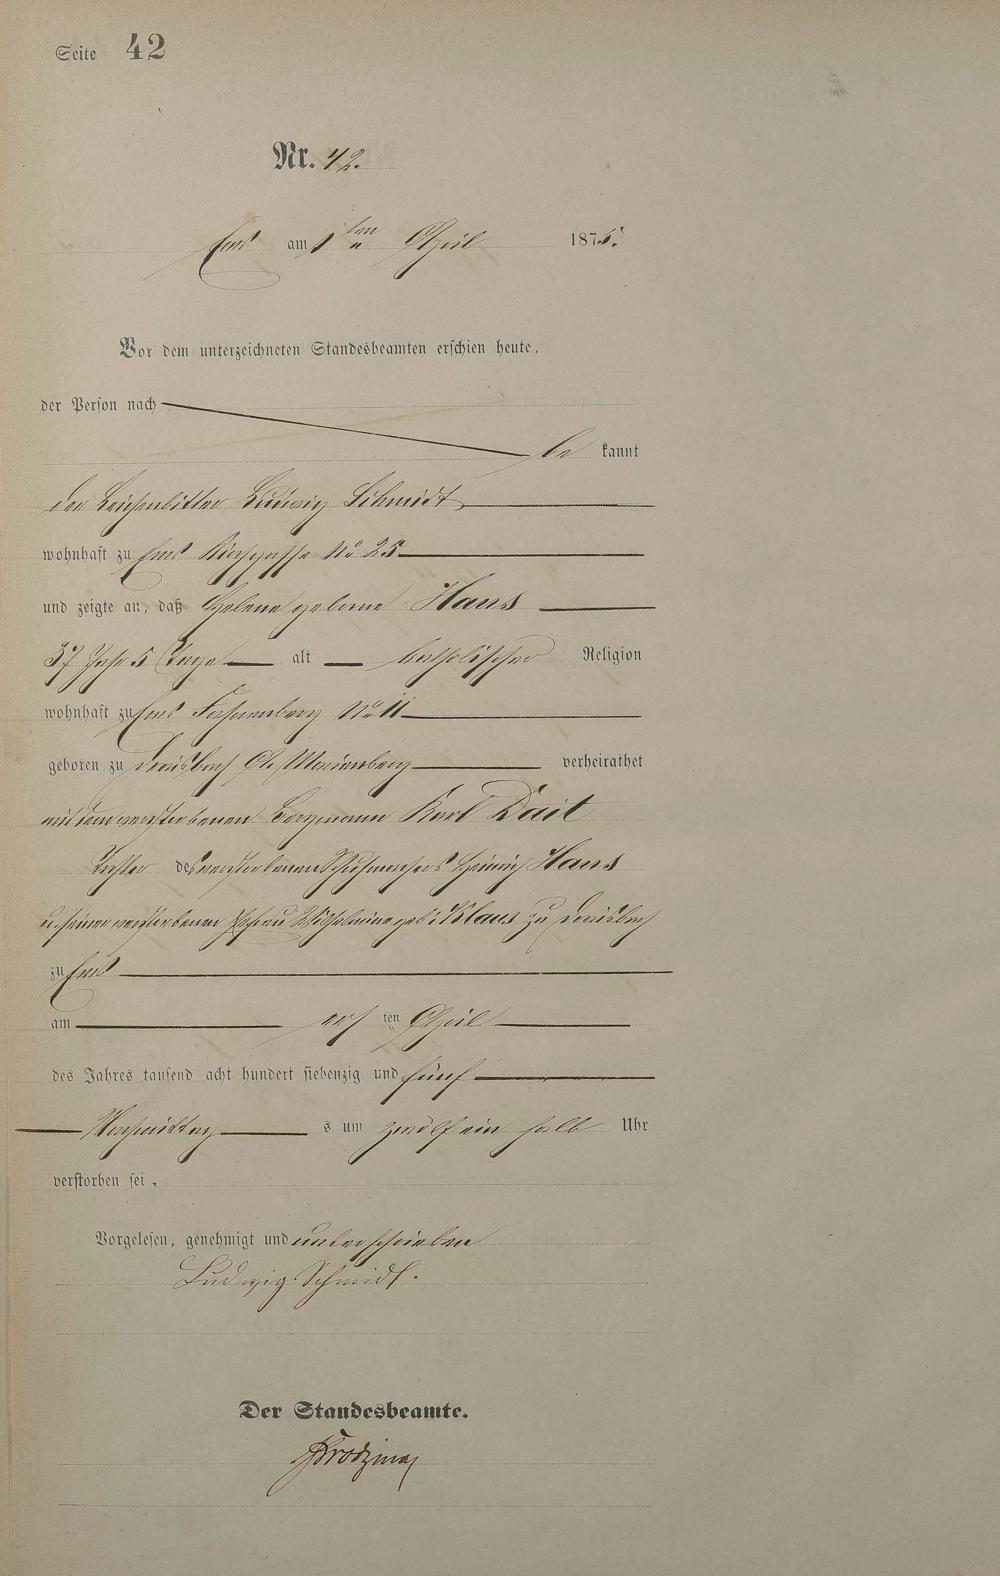 Seite 42
Nr. 42.
Ems am 1 ten April 1875.
Vor dem unterzeichneten Standesbeamten erschien heute,
der Person nach
be kannt
der Leichenbitter Ludwig Schmidt
wohnhaft zu Ems Kirchgasse No 25
und zeigte an, daß Helene geborne Haus
37 Jahr 5 Tage alt katholischer Religion
wohnhaft zu Ems No 11
geboren zu A. Marienberg verheirathet
mit dem verstorbenen Bergmann Karl Dait
Tochter des verstorbenen Schuhmachers Heinrich Haus
u. seiner verstorbenen Ehefrau Wilhelmine geb. Klaus zu
zu Ems
am ersten April
des Jahres tausend acht hundert siebenzig und fünf
Nachmittag s um zwölf ein halb Uhr
verstorben sei.
Vorgelesen, genehmigt und unterschrieben
Ludwig Schmidt.
Der Standesbeamte.